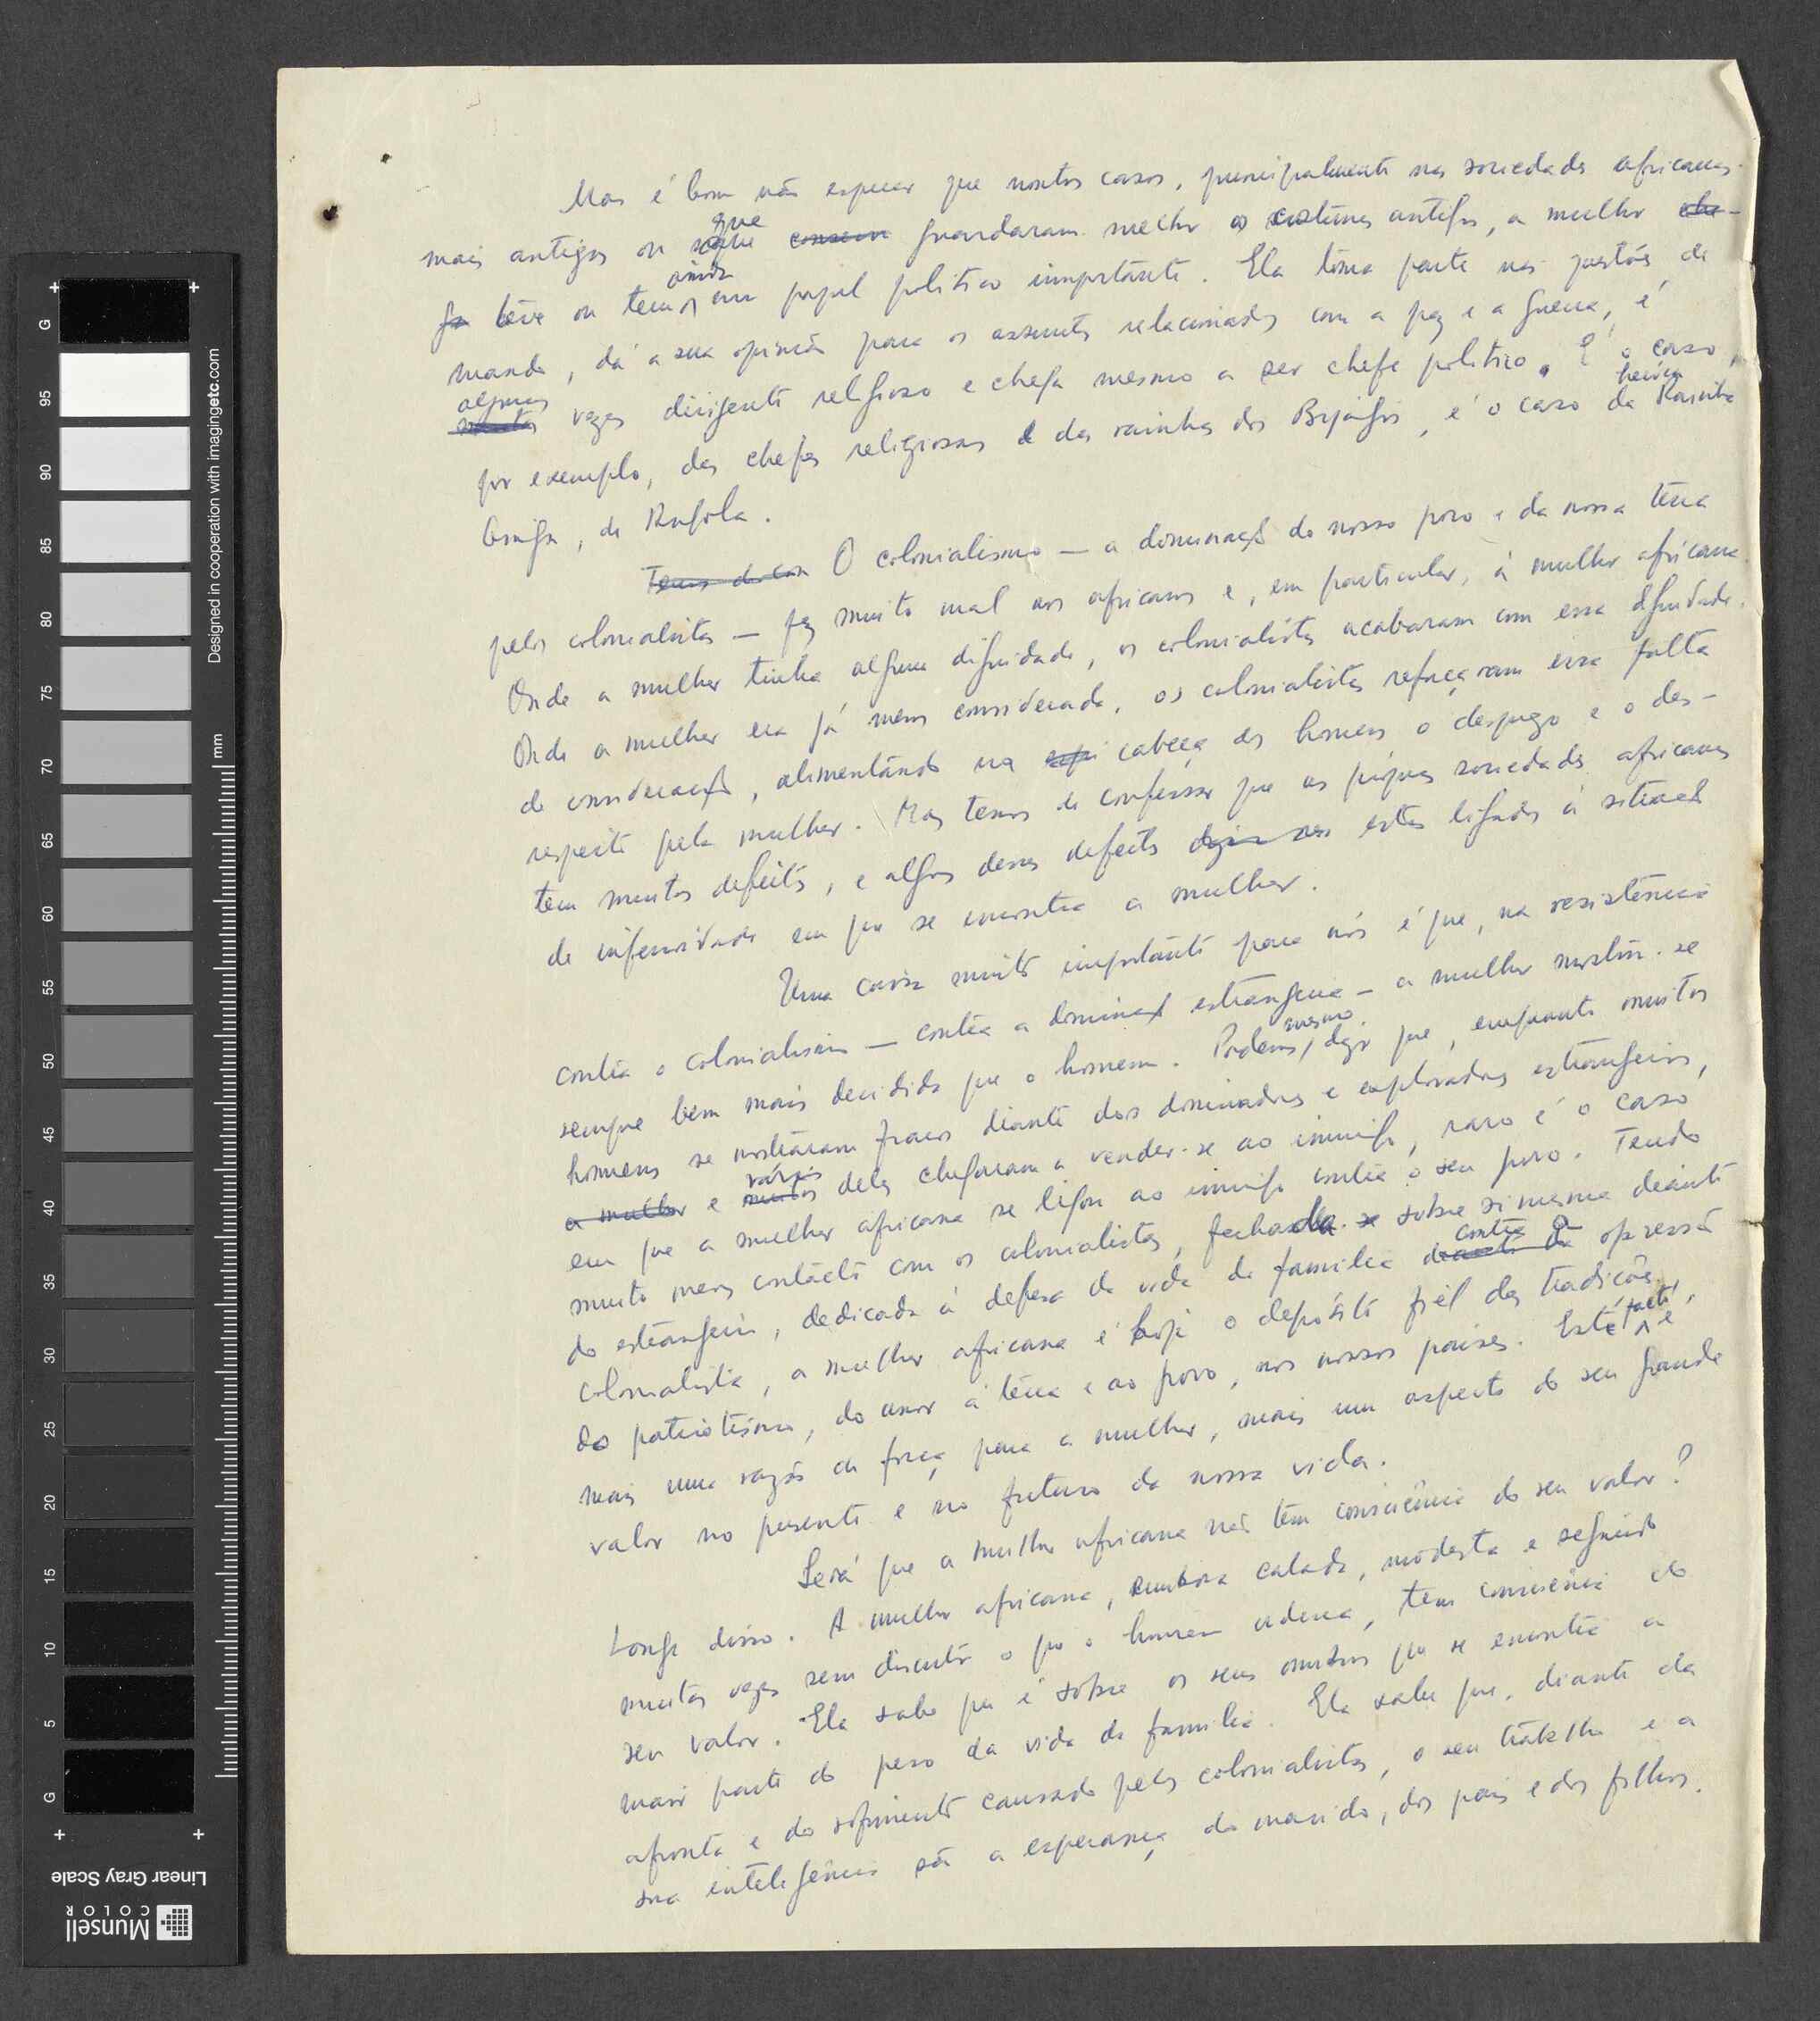 Mas é bom não esquecer que noutros casos, principalmente nas sociedades africanas
mais antigas ou que guardaram melhor os costumes antigos, a mulher
teve ou tem ainda um papel politico importante. Ela toma parte nas questões de
mando, dá a sua opinião para os assuntos relacionados com a paz e a guerra, é
algumas vezes dirigente religioso e chega mesmo a ser chefe politico. É o caso,
por exemplo, das chefes religiosas e das rainhas dos Bijagós, é o caso da heróica Rainha
Ginga, de Angola.
O colonialismo — a dominação do nosso povo e da nossa terra
pelos colonialistas — fez muito mal aos africanos e, em particular, à mulher africana.
Onde a mulher tinha alguma dignidade, os colonialistas acabaram com essa dignidade.
Onde a mulher era já menos considerada, os colonialistas reforçaram essa falta
de consideração, alimentando na cabeça dos homens o desprezo e o des-
respeito pela mulher. Mas temos de confessar que as próprias sociedades africanas
tem muitos defeitos, e alguns desses defeitos estão ligados à situação
de inferioridade em que se encontra a mulher.
Uma coisa muito importante para nós é que, na resistência
contra o colonialismo — contra a dominação estrangeira — a mulher mostrou-se
sempre bem mais decidida que o homem. Podemos mesmo dizer que, enquanto muitos
homens se mostraram fracos diante dos dominadores e exploradores estrangeiros,
e vários deles chegaram a vender-se ao inimigo, raro é o caso
em que a mulher africana se ligou ao inimigo contra o seu povo. Tendo
muito menos contacto com os colonialistas, fechada sobre si mesma diante
do estrangeiro, dedicada à defesa da vida da familia contra a opressão
colonialista, a mulher africana é hoje o depósito fiel das tradições,
do patriotismo, do amor à terra e ao povo, nos nossos países. Este facto é
mais uma razão de força para a mulher, mais um aspecto do seu grande
valor no presente e no futuro da nossa vida.
Será que a mulher africana não tem consciência do seu valor?
Longe disso. A mulher africana, embora calada, modesta e seguindo
muitas vezes sem discutir o que o homem ordena, tem consciência do
seu valor. Ela sabe que é sobre os seus ombros que se encontra a
maior parte do peso da vida da familia. Ela sabe que, diante da
afronta e do sofrimento causado pelos colonialistas, o seu trabalho e a
sua inteligência são a esperança do marido, dos pais e dos filhos.
Designed in cooperation with imagingetc.com
mm
G 95 90 85 80 75 70 65 60 55 50 45 40 35 30 25 20 15 10 5 G
Linear Gray Scale
Munsell
COLOR